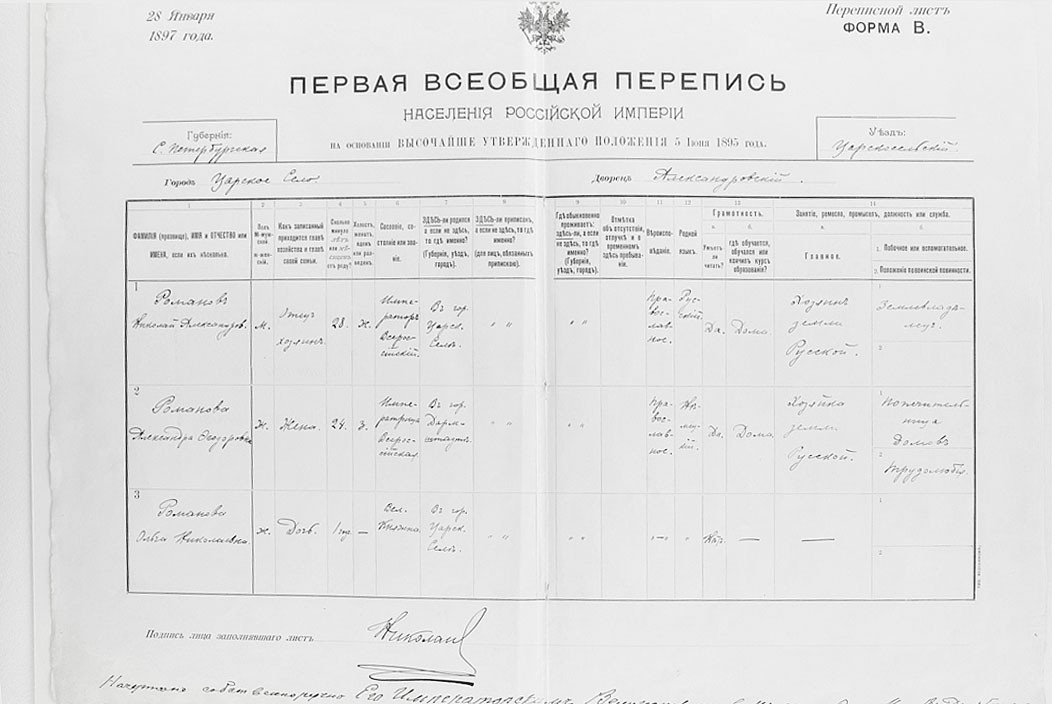 28 Января
1897 года.
Переписной листъ
ФОРМА В.
ПЕРВАЯ ВСЕОБЩАЯ ПЕРЕПИСЬ
НАСЕЛЕНІЯ РОССІЙСКОЙ ИМПЕРІИ
НА ОСНОВАНІИ ВЫСОЧАЙШЕ УТВЕРЖДЕННАГО ПОЛОЖЕНІЯ 5 Іюня 1895 года.
Губернія:
С. Петербургская
Уѣздъ:
Царскосельскій.
Городъ Царское Село.
Дворецъ Александровскій.
1 2 3 4 5 6 7 8 9 10 11 12 13 14
ФАМИЛІЯ (прозвище), ИМЯ и ОТЧЕСТВО или ИМЕНА, если ихъ нѣсколько.
Полъ М-мужской Ж-женскій.
Какъ записанный приходится главѣ хозяйства и главѣ своей семьи.
Сколько минуло лѣтъ или мѣсяцевъ отъ роду?
Холостъ, женатъ, вдовъ или разведенъ.
Сословіе, состояніе или званіе.
ЗДѢСЬ-ли родился а если не здѣсь, то гдѣ именно? (Губернія, уѣздъ, городъ).
ЗДѢСЬ-ли приписанъ, а если не здѣсь, то гдѣ именно? (для лицъ, обязанныхъ припискою).
Гдѣ обыкновенно проживаетъ: здѣсь-ли, а если не здѣсь, то гдѣ именно? (Губернія, уѣздъ, городъ).
Отмѣтка объ отсутствіи, отлучкѣ и о временномъ здѣсь пребываніи.
Вѣроисповѣданіе.
Родной языкъ.
Грамотность.
а. Умѣетъ ли читать?
б. гдѣ обучается, обучался или кончилъ курсъ образованія?
Занятіе, ремесло, промыселъ, должность или служба.
а. Главное.
б.
1. Побочное или вспомогательное.
2. Положеніе по воинской повинности.
1
Романовъ Николай Александров.
М.
Отецъ хозяинъ
28.
Ж.
Императоръ Всероссійскій.
Въ гор. Царск. Селѣ.
" "
" "
Православное.
Русскій.
Да.
Дома.
Хозяинъ земли Русской.
1
Землевладѣлецъ.
2
2
Романова Александра Ѳеодоровна
Ж.
Жена.
24.
З.
Императрица Всероссійская
Въ гор. Дармштадтѣ.
" "
" "
Православное.
Нѣмецкій.
Да.
Дома.
Хозяйка земли Русской.
1
Попечительница Домовъ
2
Трудолюбія.
3
Романова Ольга Николаевна
Ж.
Дочь.
1 год
—
Вел. Княжна.
Въ гор. Царск. Селѣ.
" "
" "
"—"
"
Нѣт.
—
—
1
2
Подпись лица заполнявшаго листъ
Николай
Начертано собственноручно Его Императорскимъ